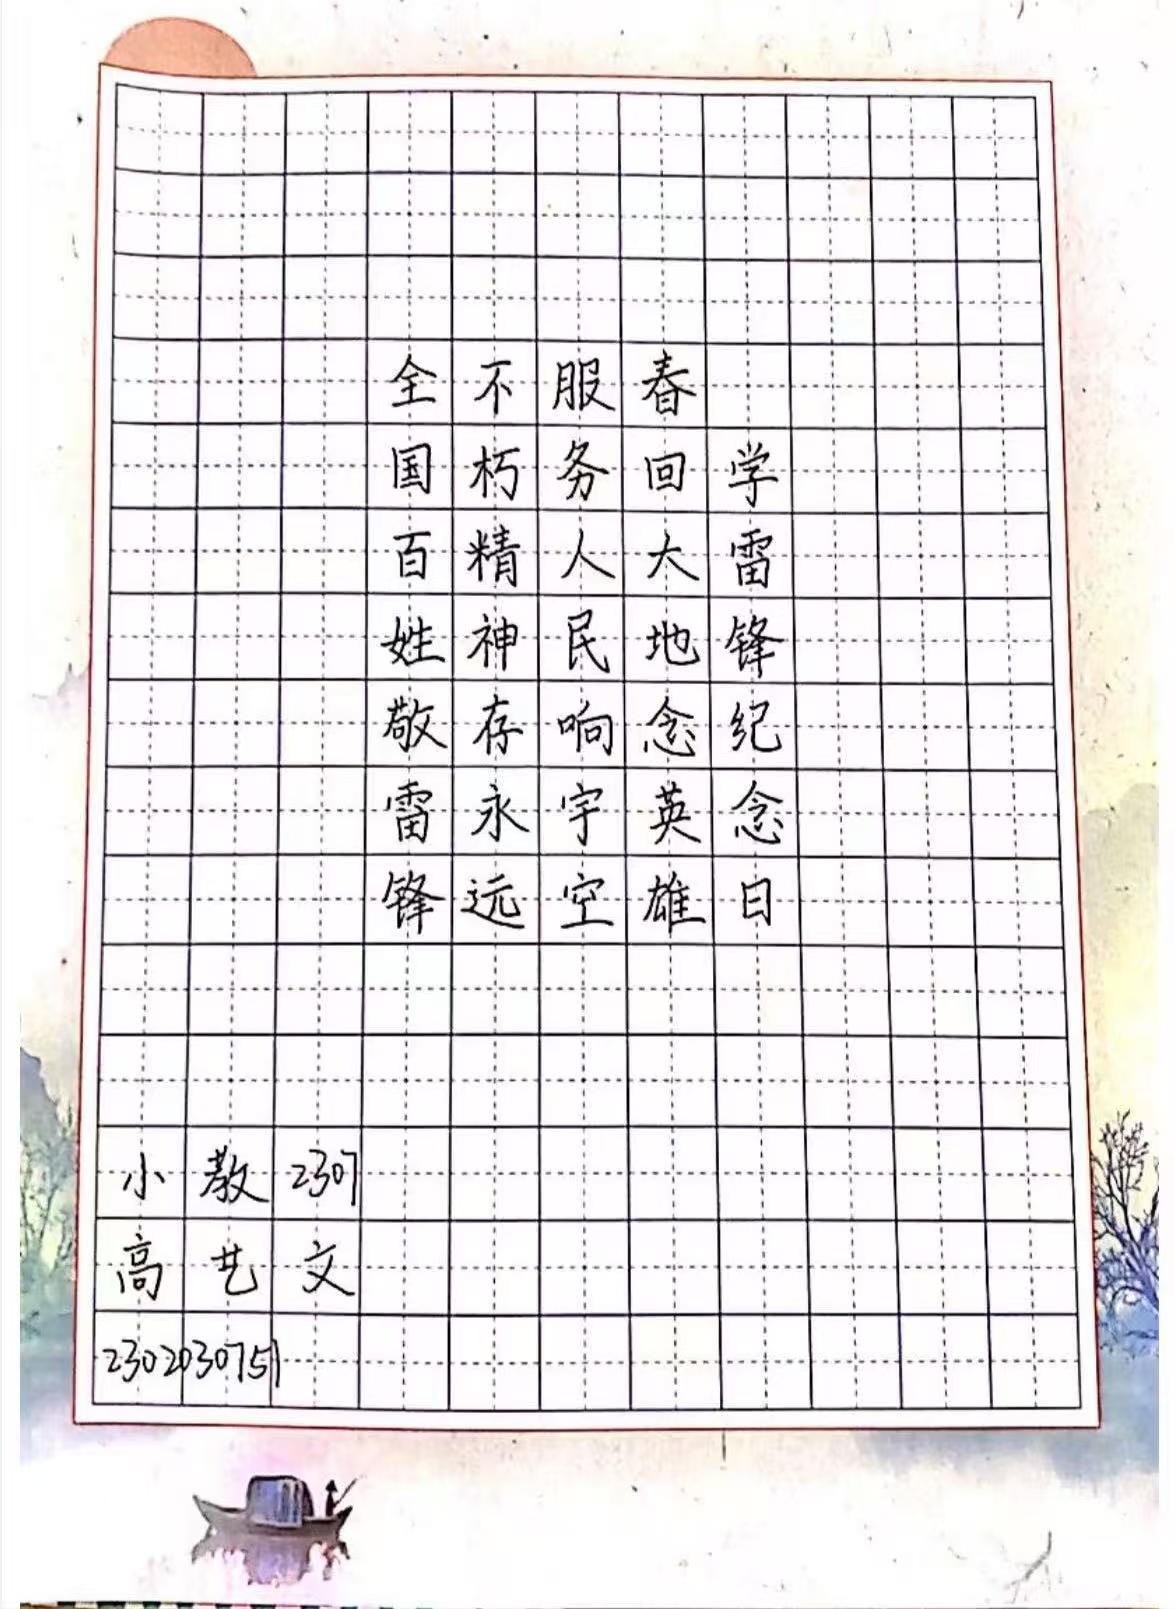 学雷锋纪念日
春回大地念英雄
服务人民响宇空
不朽精神存永远
全国百姓敬雷锋
小教2307
高艺文
2302030751